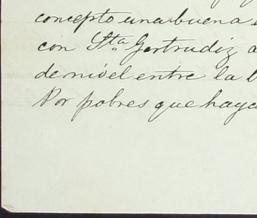 concepto una buena
con Sta. Gertrudiz a
de nivel entre la b
Por pobres que haya